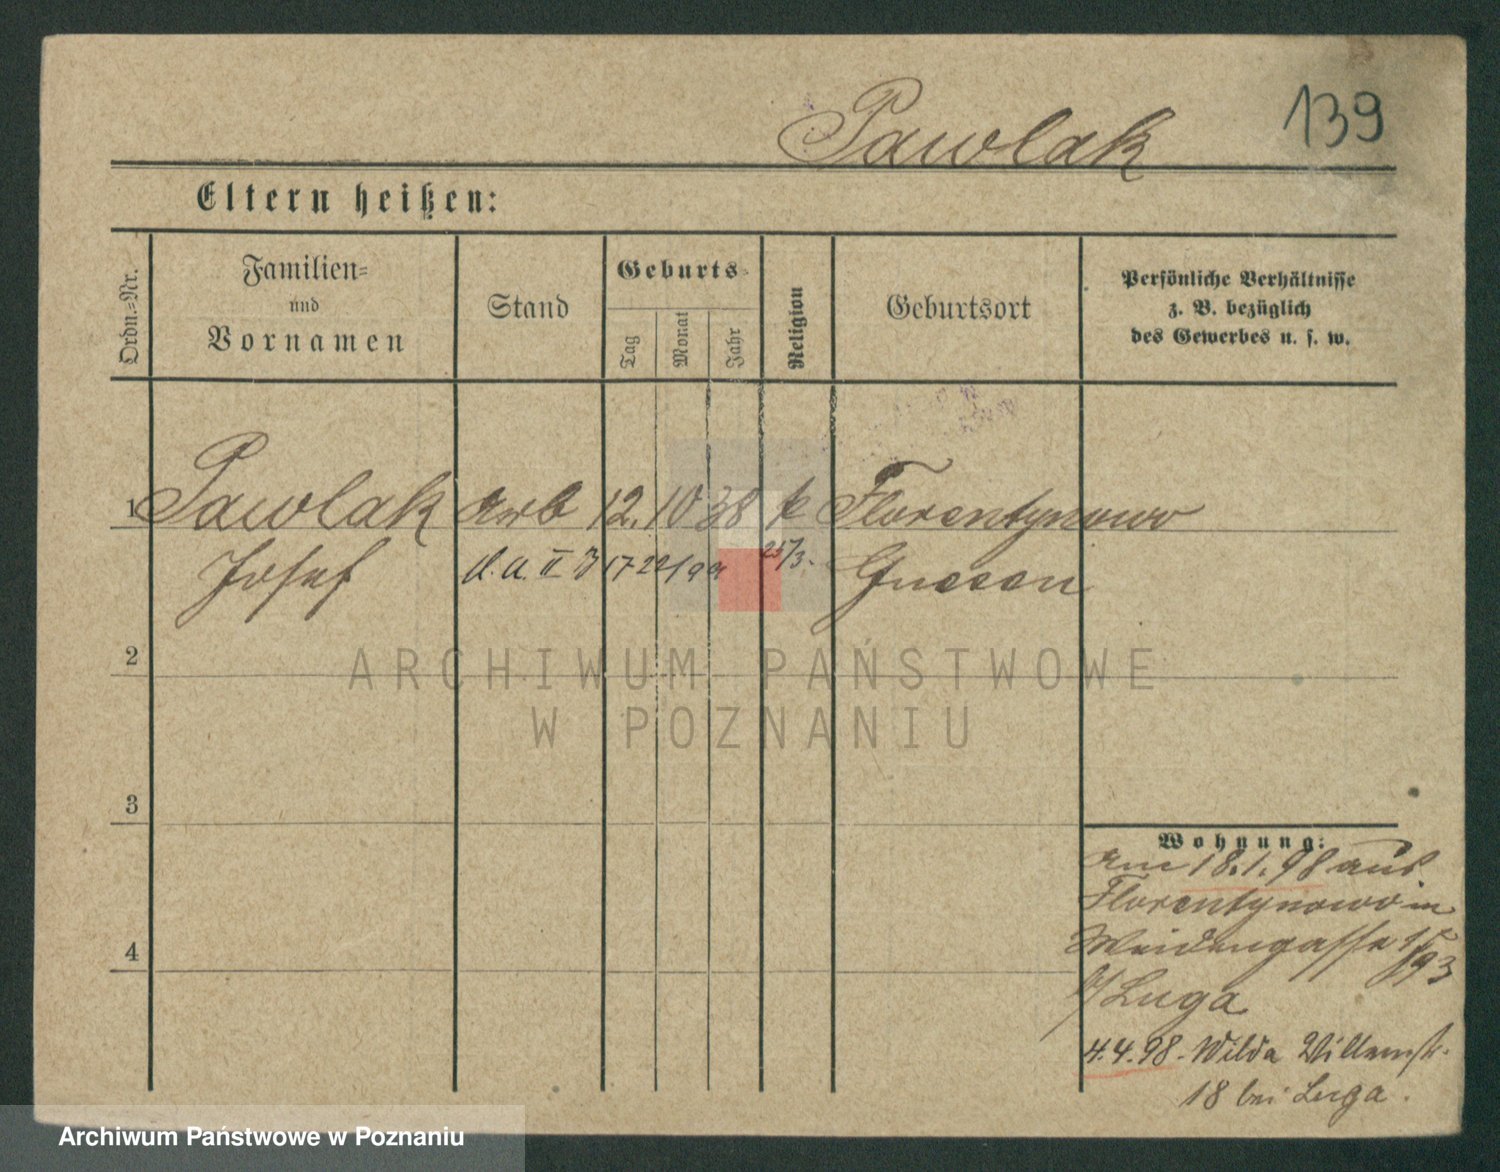 139
Pawlak
Eltern heißen:
Ordn.-Nr.
Familien-
und
Vornamen
Stand
Geburts-
Tag
Monat
Jahr
Religion
Geburtsort
Persönliche Verhältnisse
z. B. bezüglich
des Gewerbes u. s. w.
1 Pawlak Arb 12. 10 38 k Florentynowo
Josef d. A. II J 17 22/9 25/3. Gnesen
2
ARCHIWUM PAŃSTWOWE
W POZNANIU
3
4
Wohnung:
Am 18.1.98 aus
Florentynowo in
Weidengasse
b/ Luga
4.4.98. Wilda Willemstr.
18 bei Luga.
Archiwum Państwowe w Poznaniu